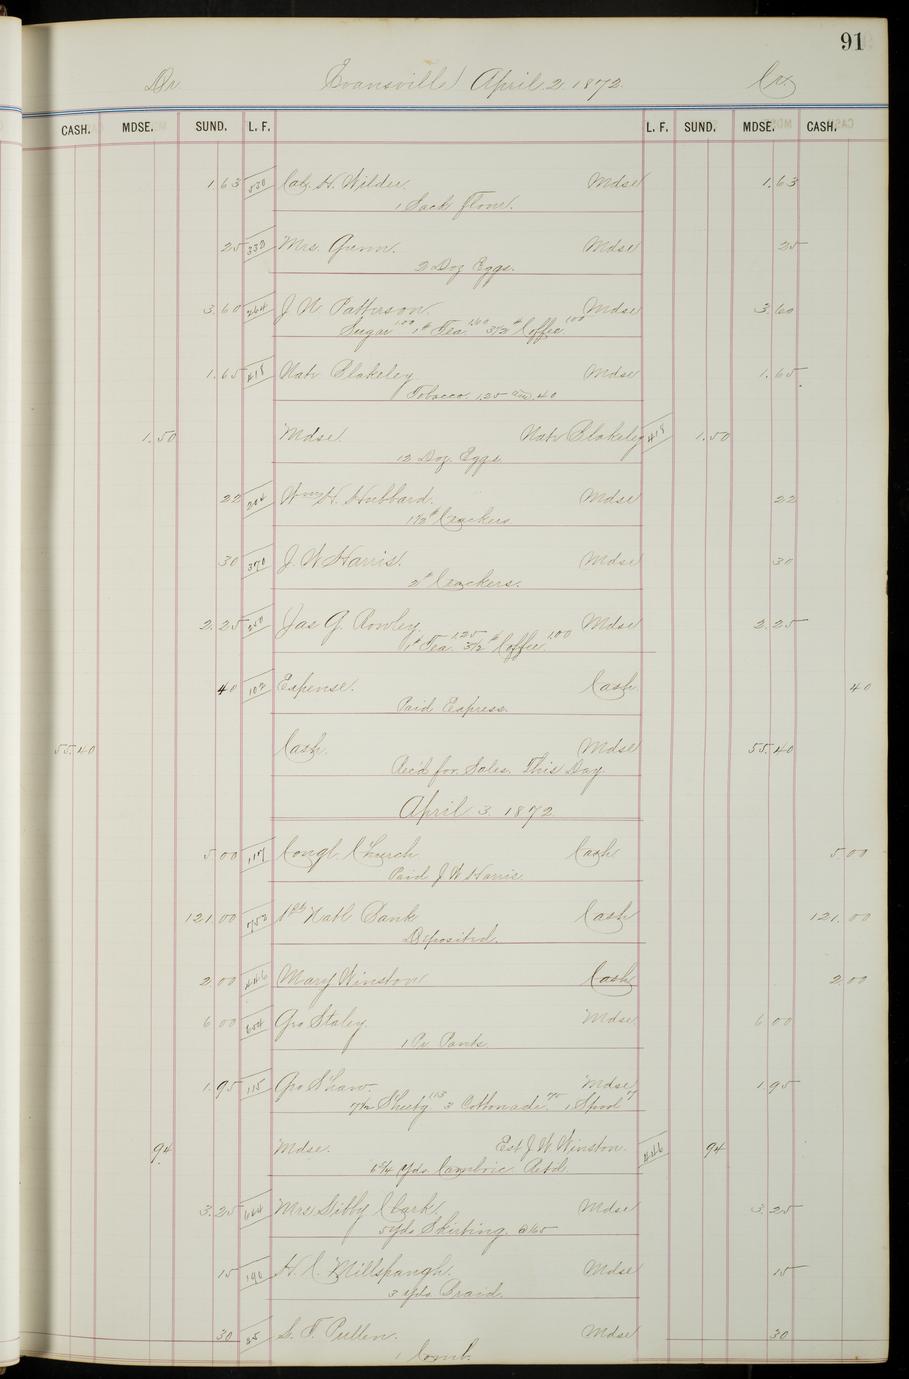 91
Dr Evansville April 2. 1872. Crs
CASH. MDSE. SUND. L. F. L. F. SUND. MDSE. CASH.
1.63 330 H. Wilder. Mdse 1.63
1 Sack Flour.
25 330 Mrs. Mdse 25
2 Doz Eggs.
3.60 264 J W Patterson Mdse 3.60
Sugar 1.00 1# Tea 1.60 3 1/2# Coffee 1.00
1.65 418 Nath Blakeley Mdse 1.65
Tobacco 1.25 .40
1.50 Mdse. Nath Blakeley 418 1.50
12 Doz. Eggs
22 204 Wm H. Hubbard. Mdse 22
1 1/2# Crackers
30 370 J. W Harris. Mdse 30
2# Crackers.
2.25 Jas G. Rowley. Mdse 2.25
1# Tea 1.25 3 1/2# Coffee 1.00
40 102 Expense. Cash 40
Paid Express.
55.40 Cash. Mdse 55.40
Rec'd for Sales. This Day.
April 3. 1872
5 00 117 Congl. Church Cash 5 00
Paid J W Harris
121 00 753 1st Natl Bank Cash 121.00
Deposited.
2 00 446 Mary Winston Cash 2 00
6 00 604 Geo Staley. Mdse 6 00
1 Pr Pants
1.95 115 Geo Shaw. Mdse 1.95
7 1/2 Sheetg 1.13 3 Cottonade 75 1 Spool 7
94 Mdse. Est J. W. Winston. 446 94
yds. Cambric Retd.
3.25 664 Mrs Libby Clark. Mdse 3.25
5 yds Skirting @ 65
15 190 H. C. Millspaugh. Mdse 15
3 yds. Braid.
30 85 S. F. Pullen. Mdse 30
1 Comb.